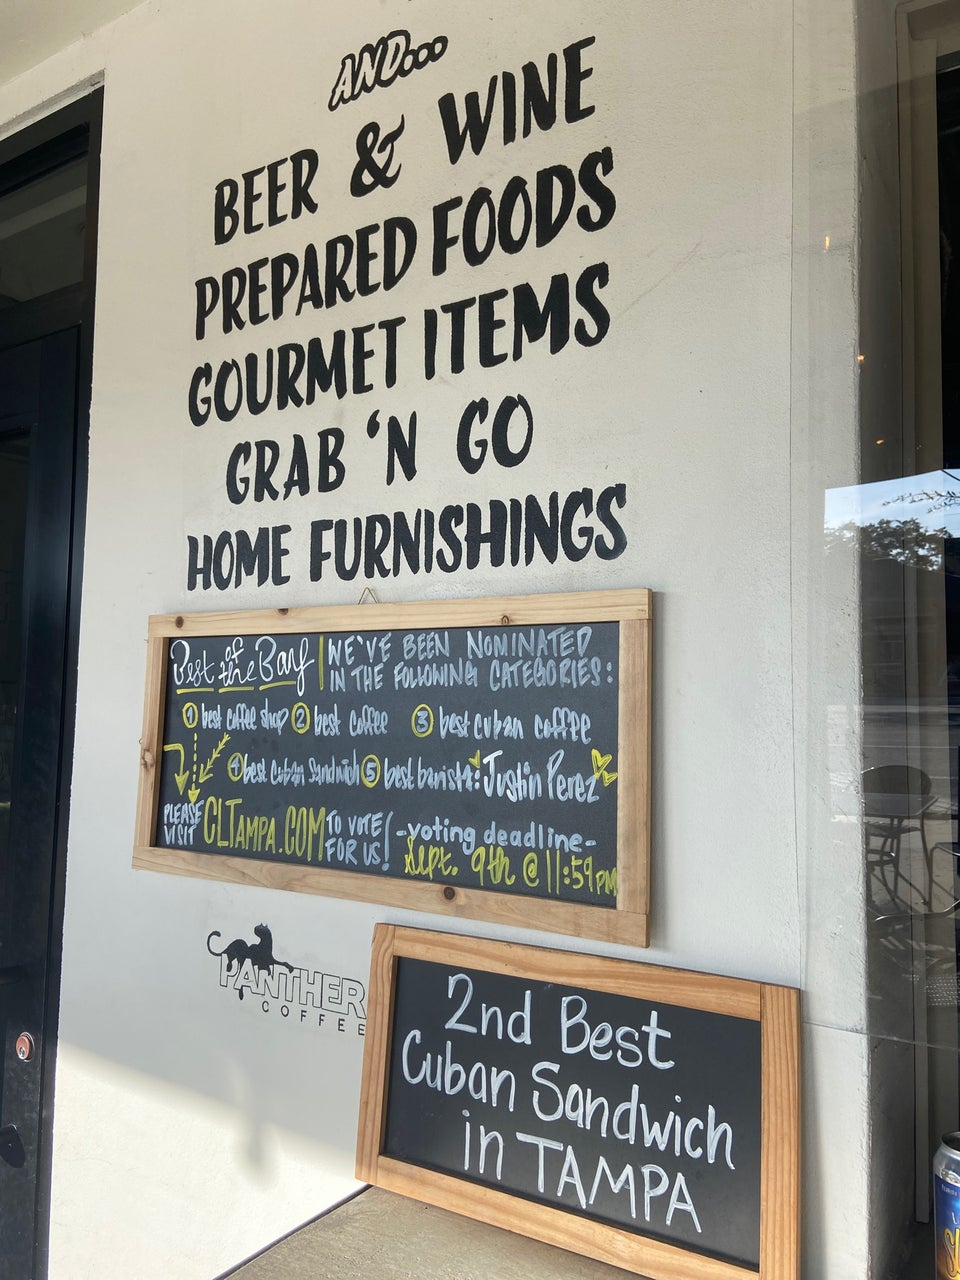 AND...
BEER & WINE
PREPARED FOODS
GOURMET ITEMS
GRAB 'N GO
HOME FURNISHINGS
Best of the Bay
WE'VE BEEN NOMINATED
IN THE FOLLOWING CATEGORIES:
1 best coffee shop 2 best coffee 3 best cuban coffee
4 best cuban sandwich 5 best barista: Justin Perez
PLEASE VISIT CLTAMPA.COM TO VOTE FOR US!
-voting deadline-
Sept. 9th @ 11:59PM
PANTHER
COFFEE
2nd Best
Cuban Sandwich
in TAMPA